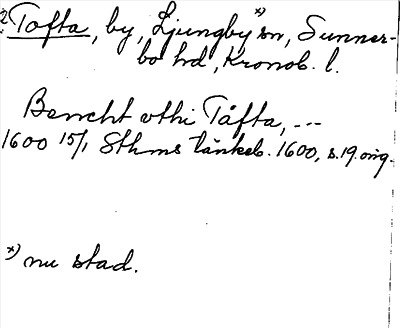 2. Tofta, by, Ljungby *) sn, Sunner-
bo hd, Kronob. l.
Bencht vthi Tåfta, ---
1600 15/1 Sthms tänkeb. 1600, s. 19. orig.
*) nu stad.